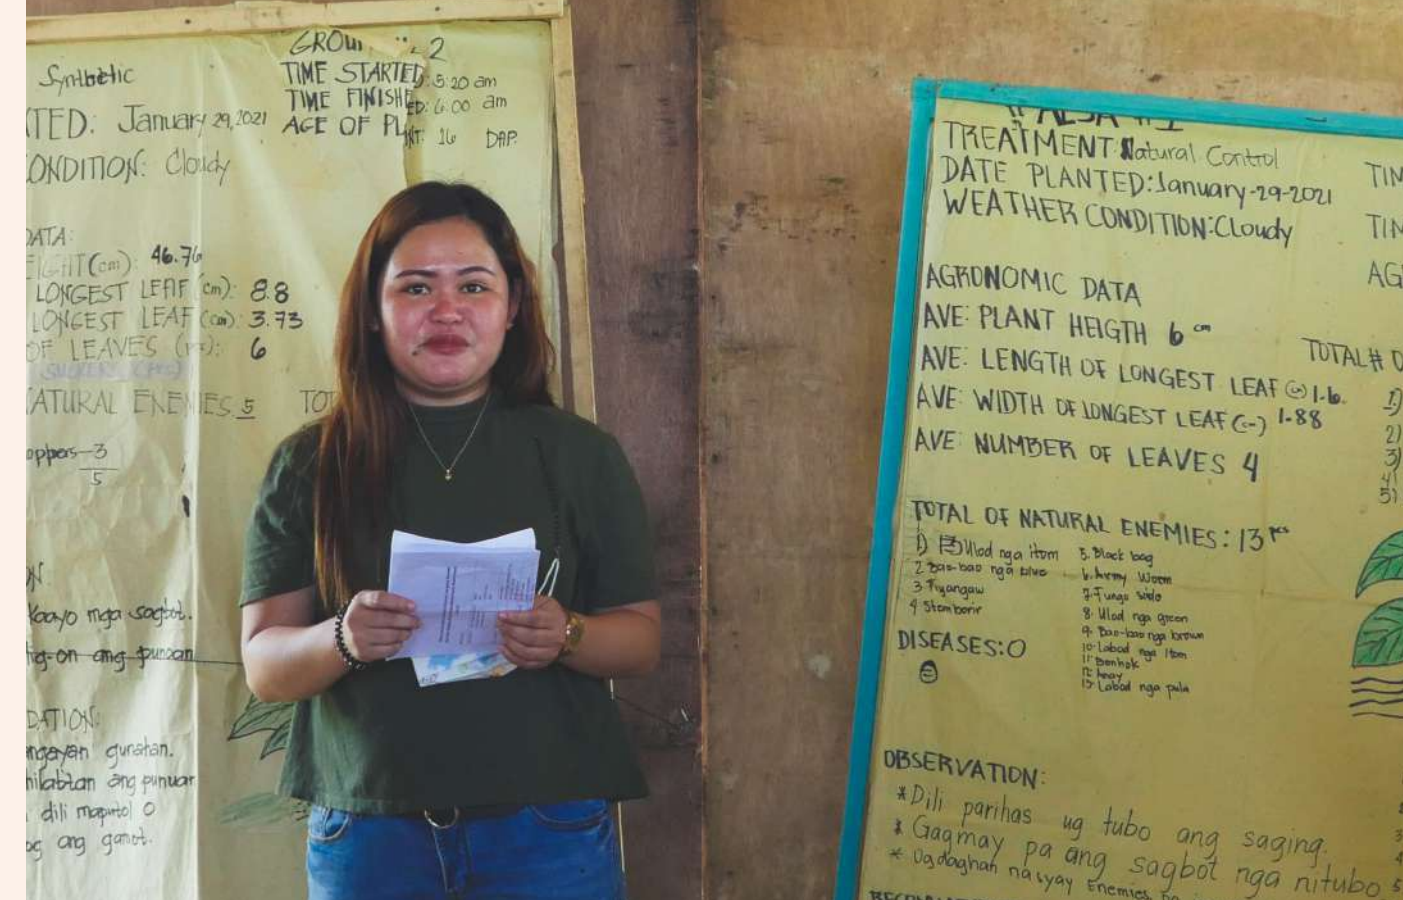 Synthetic
GROUP 2
TIME STARTED: 5:20 am
TIME FINISHED: 6:00 am
AGE OF PLANT: 16 DAP.
TED: January 29, 2021
ONDITION: Cloudy
DATA:
EIGHT (cm): 46.76
LONGEST LEAF (cm): 8.8
LONGEST LEAF (cm): 3.73
OF LEAVES (pcs): 6
SUCKERS (PCS)
NATURAL ENEMIES 5 TOT
oppers-3
5
N:
kaayo mga sagbot.
tig-on ang punoan
DATION:
ngayan gunahan.
hilabtan ang punuan
dili maputol o
ang gamot.
TREATMENT: Natural Control
DATE PLANTED: January-29-2021
WEATHER CONDITION: Cloudy
TIM
TIM
AG
AGRONOMIC DATA
AVE: PLANT HEIGTH 6 cm
AVE: LENGTH OF LONGEST LEAF (cm) 1.6.
AVE: WIDTH OF LONGEST LEAF (cm) 1.88
AVE: NUMBER OF LEAVES 4
TOTAL # O
1)
2)
3)
4)
5)
TOTAL OF NATURAL ENEMIES: 13 pcs
1) Ulod nga itom
2 Bao-bao nga blue
3 Tiyangaw
4 Stemborir
5. Black bag
6. Army Worm
8. Ulod nga green
9. Bao-bao nga brown
10. Labod nga Itom
11. Bonhok
12. Anay
13. Labod nga pula
DISEASES: 0
OBSERVATION:
* Dili parihas ug tubo ang saging.
* Gagmay pa ang sagbot nga nitubo
* Og daghan na syay Enemies